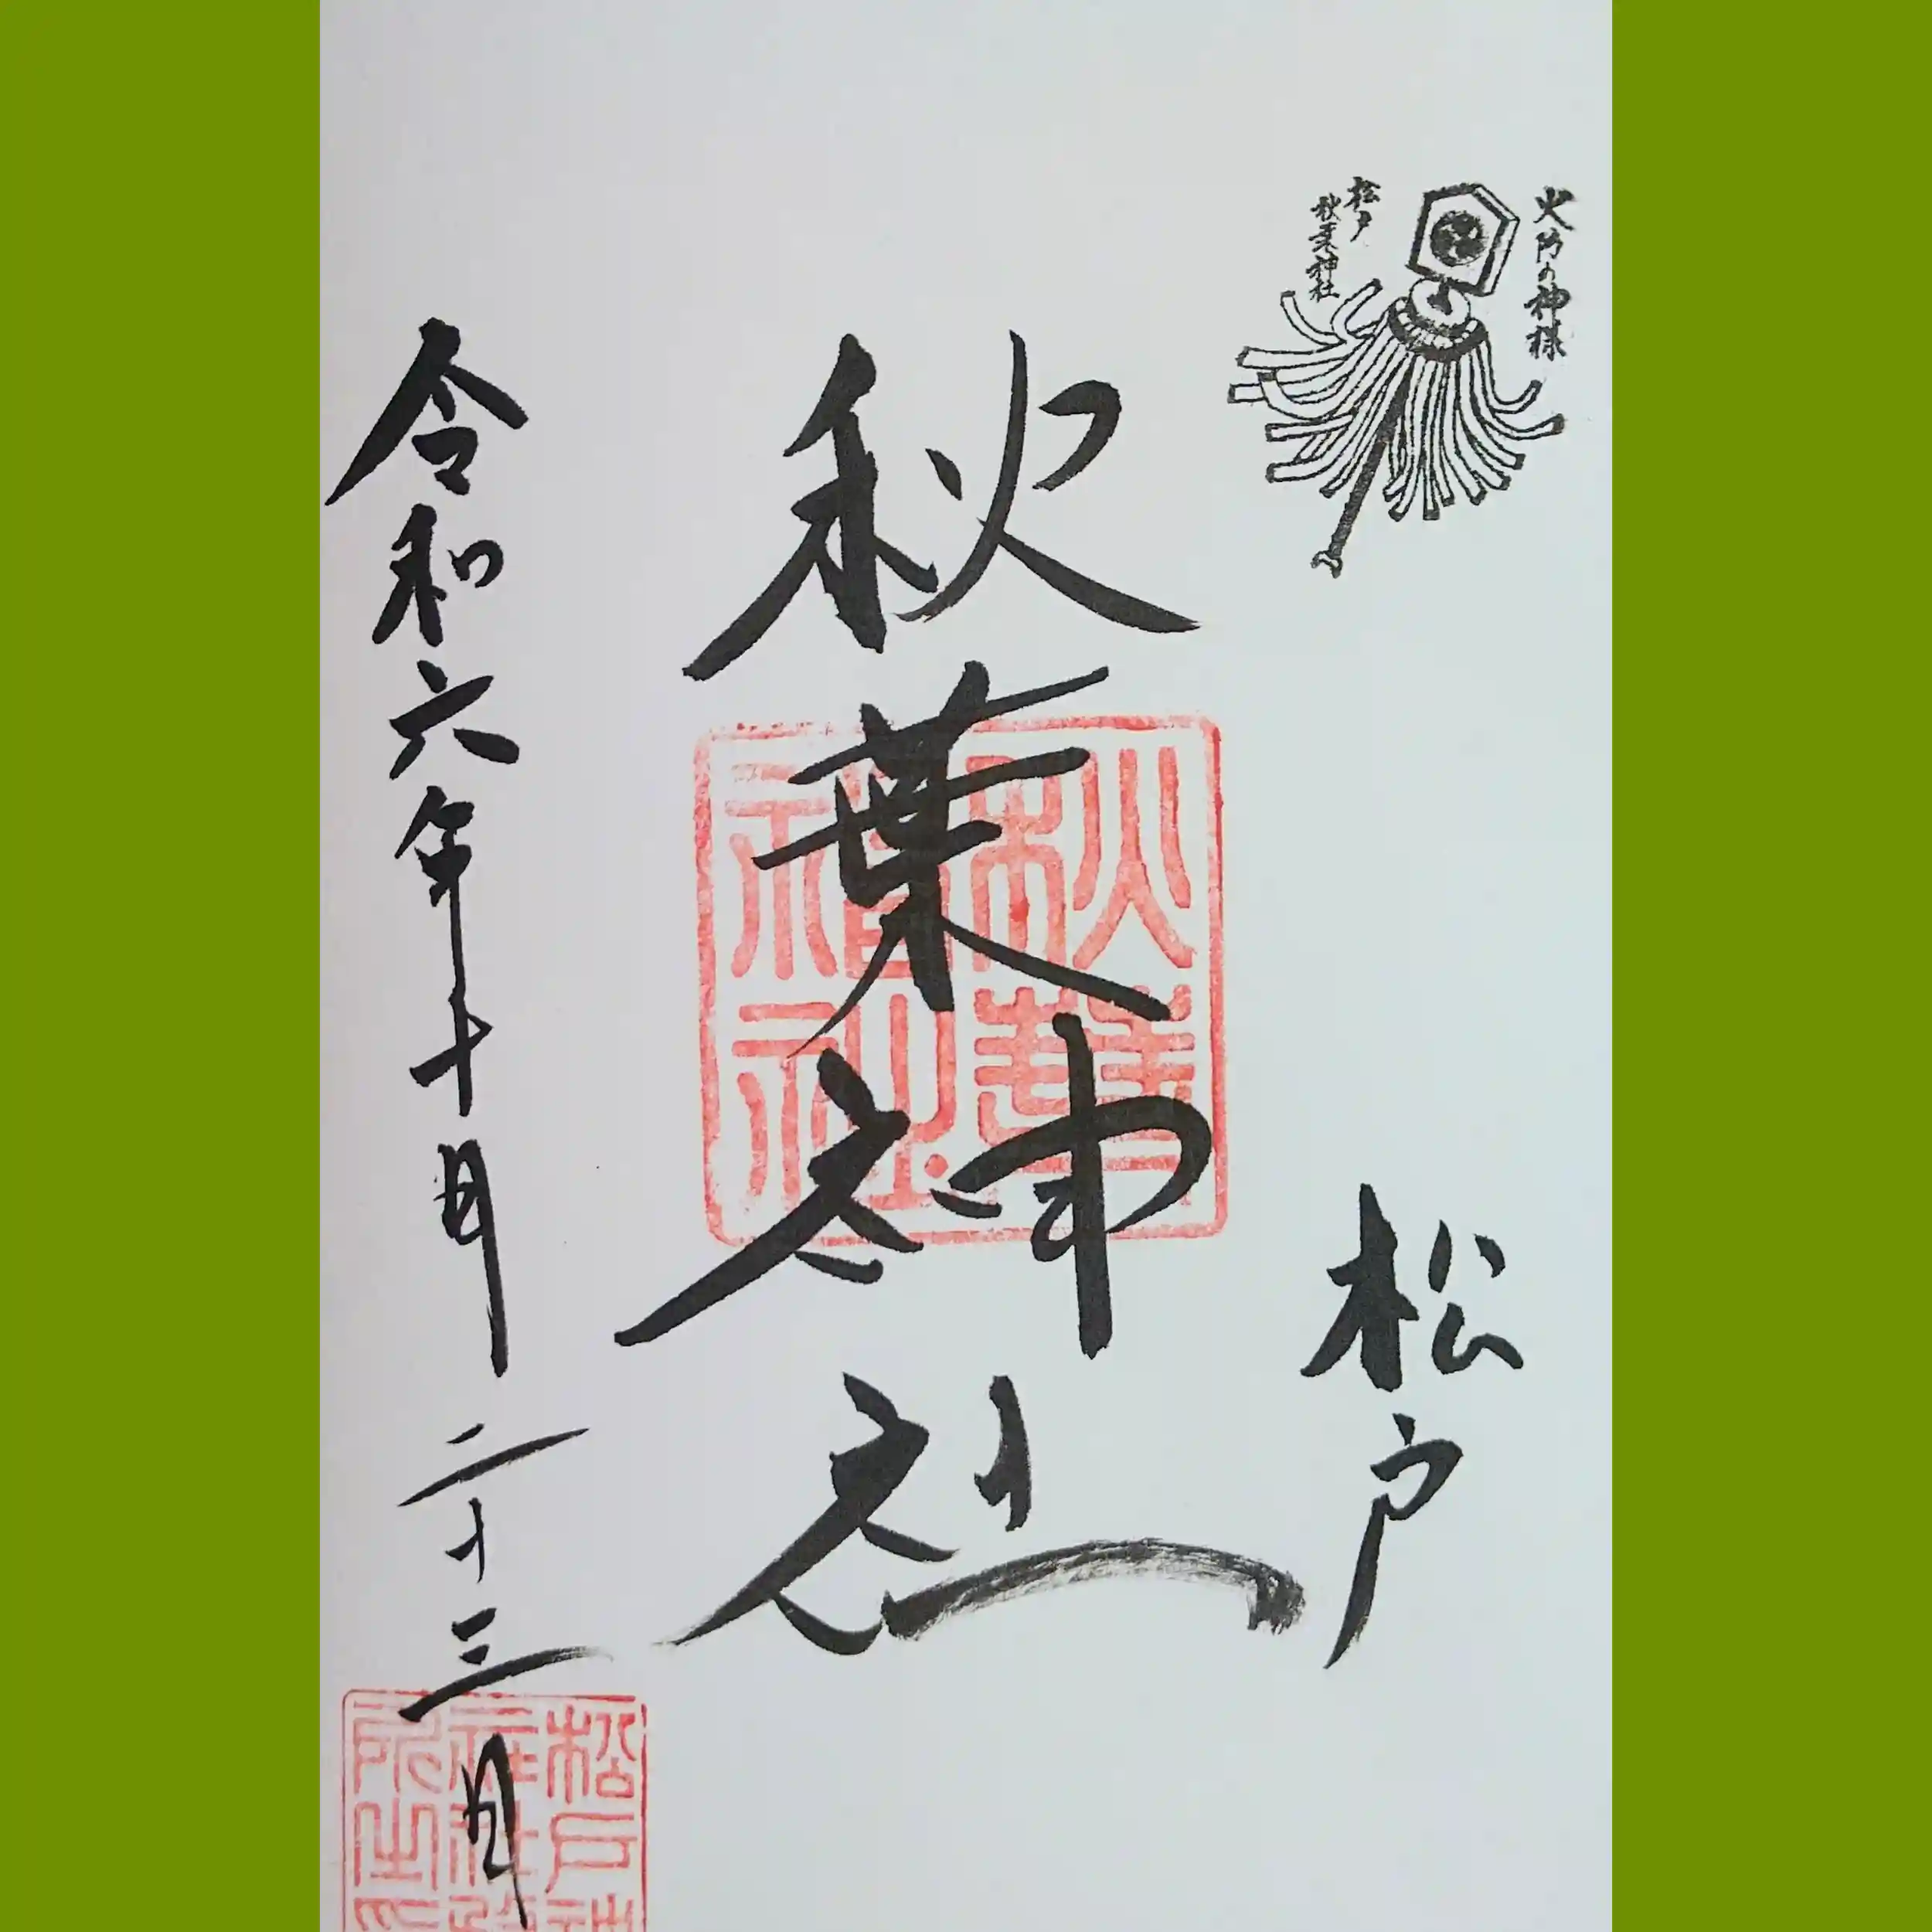 火防の神様
松戸
秋葉神社
松戸
秋葉神社
秋葉神社
令和六年十月二十三日
松戸神
社務
所之印